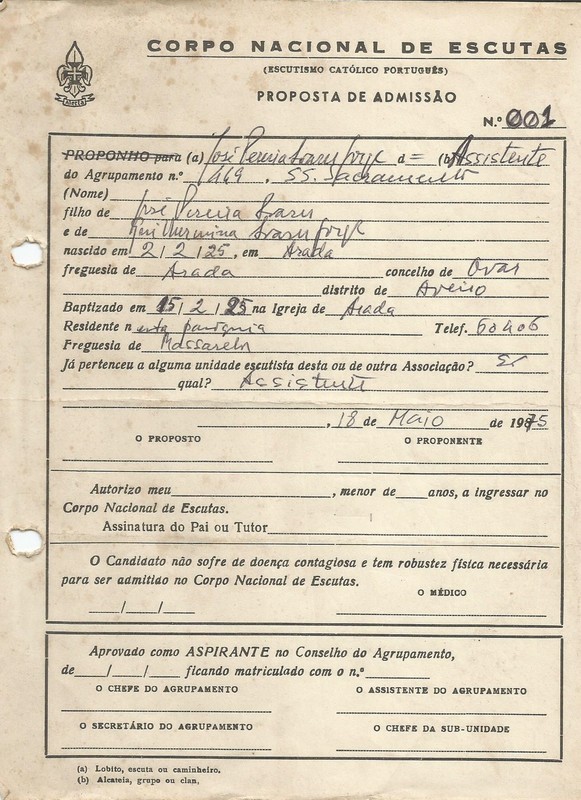 CORPO NACIONAL DE ESCUTAS
(ESCUTISMO CATÓLICO PORTUGUÊS)
PROPOSTA DE ADMISSÃO
ALERTA
N.º 001
PROPONHO para (a) José Pereira Soares Jorge d = (b) Assistente
do Agrupamento n.º 469, SS. Sacramento
(Nome)
filho de José Pereira Soares
e de Guilhermina Soares Jorge
nascido em 2/2/25, em Arada
freguesia de Arada concelho de Ovar
distrito de Aveiro
Baptizado em 15/2/25 na Igreja de Arada
Residente nesta paróquia Telef. 60406
Freguesia de Massarelos
Já pertenceu a alguma unidade escutista desta ou de outra Associação?
qual? Assistente
, 18 de Maio de 1975
O PROPOSTO O PROPONENTE
Autorizo meu , menor de anos, a ingressar no
Corpo Nacional de Escutas.
Assinatura do Pai ou Tutor
O Candidato não sofre de doença contagiosa e tem robustez física necessária
para ser admitido no Corpo Nacional de Escutas.
O MÉDICO
/ /
Aprovado como ASPIRANTE no Conselho do Agrupamento,
de / / ficando matriculado com o n.º
O CHEFE DO AGRUPAMENTO O ASSISTENTE DO AGRUPAMENTO
O SECRETÁRIO DO AGRUPAMENTO O CHEFE DA SUB-UNIDADE
(a) Lobito, escuta ou caminheiro.
(b) Alcateia, grupo ou clan.